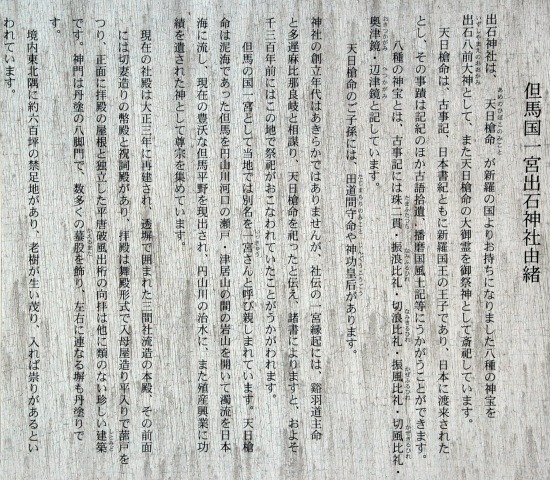 但馬国一宮出石神社由緒
出石神社は、天日槍命が新羅の国よりお持ちになりました八種の神宝を
出石八前大神として、また天日槍命の大御霊を御祭神として斎祀しています。
天日槍命は、古事記、日本書紀ともに新羅国王の王子であり、日本に渡来された
とし、その事蹟は記紀のほか古語拾遺、播磨国風土記等にうかがうことができます。
八種の神宝とは、古事記には珠二貫・振浪比礼・切浪比礼・振風比礼・切風比礼・
奥津鏡・辺津鏡と記しています。
天日槍命のご子孫には、田道間守命や神功皇后があります。
神社の創立年代はあきらかではありませんが、社伝の一宮縁起には、谿羽道主命
と多遅麻比那良岐と相謀り、天日槍命を祀ったと伝え、諸書によりますと、およそ
千三百年前にはこの地で祭祀がおこなわれていたことがうかがわれます。
但馬の国一宮として当地では別名を一宮さんと呼び親しまれています。天日槍
命は泥海であった但馬を円山川河口の瀬戸・津居山の間の岩山を開いて濁流を日本
海に流し、現在の豊沃な但馬平野を現出され、円山川の治水に、また殖産興業に功
績を遺された神として尊崇を集めています。
現在の社殿は大正三年に再建され、透塀で囲まれた三間社流造の本殿、その前面
には切妻造りの幣殿と祝詞殿があり、拝殿は舞殿形式で入母屋造り平入りで蔀戸を
つり、正面に拝殿の屋根と独立した平唐破風出桁の向拝は他に類のない珍しい建築
です。神門は丹塗の八脚門で、数多くの蟇股を飾り、左右に連なる塀も丹塗りで
す。
境内東北隅に約六百坪の禁足地があり、老樹が生い茂り、入れば祟りがあるとい
われています。